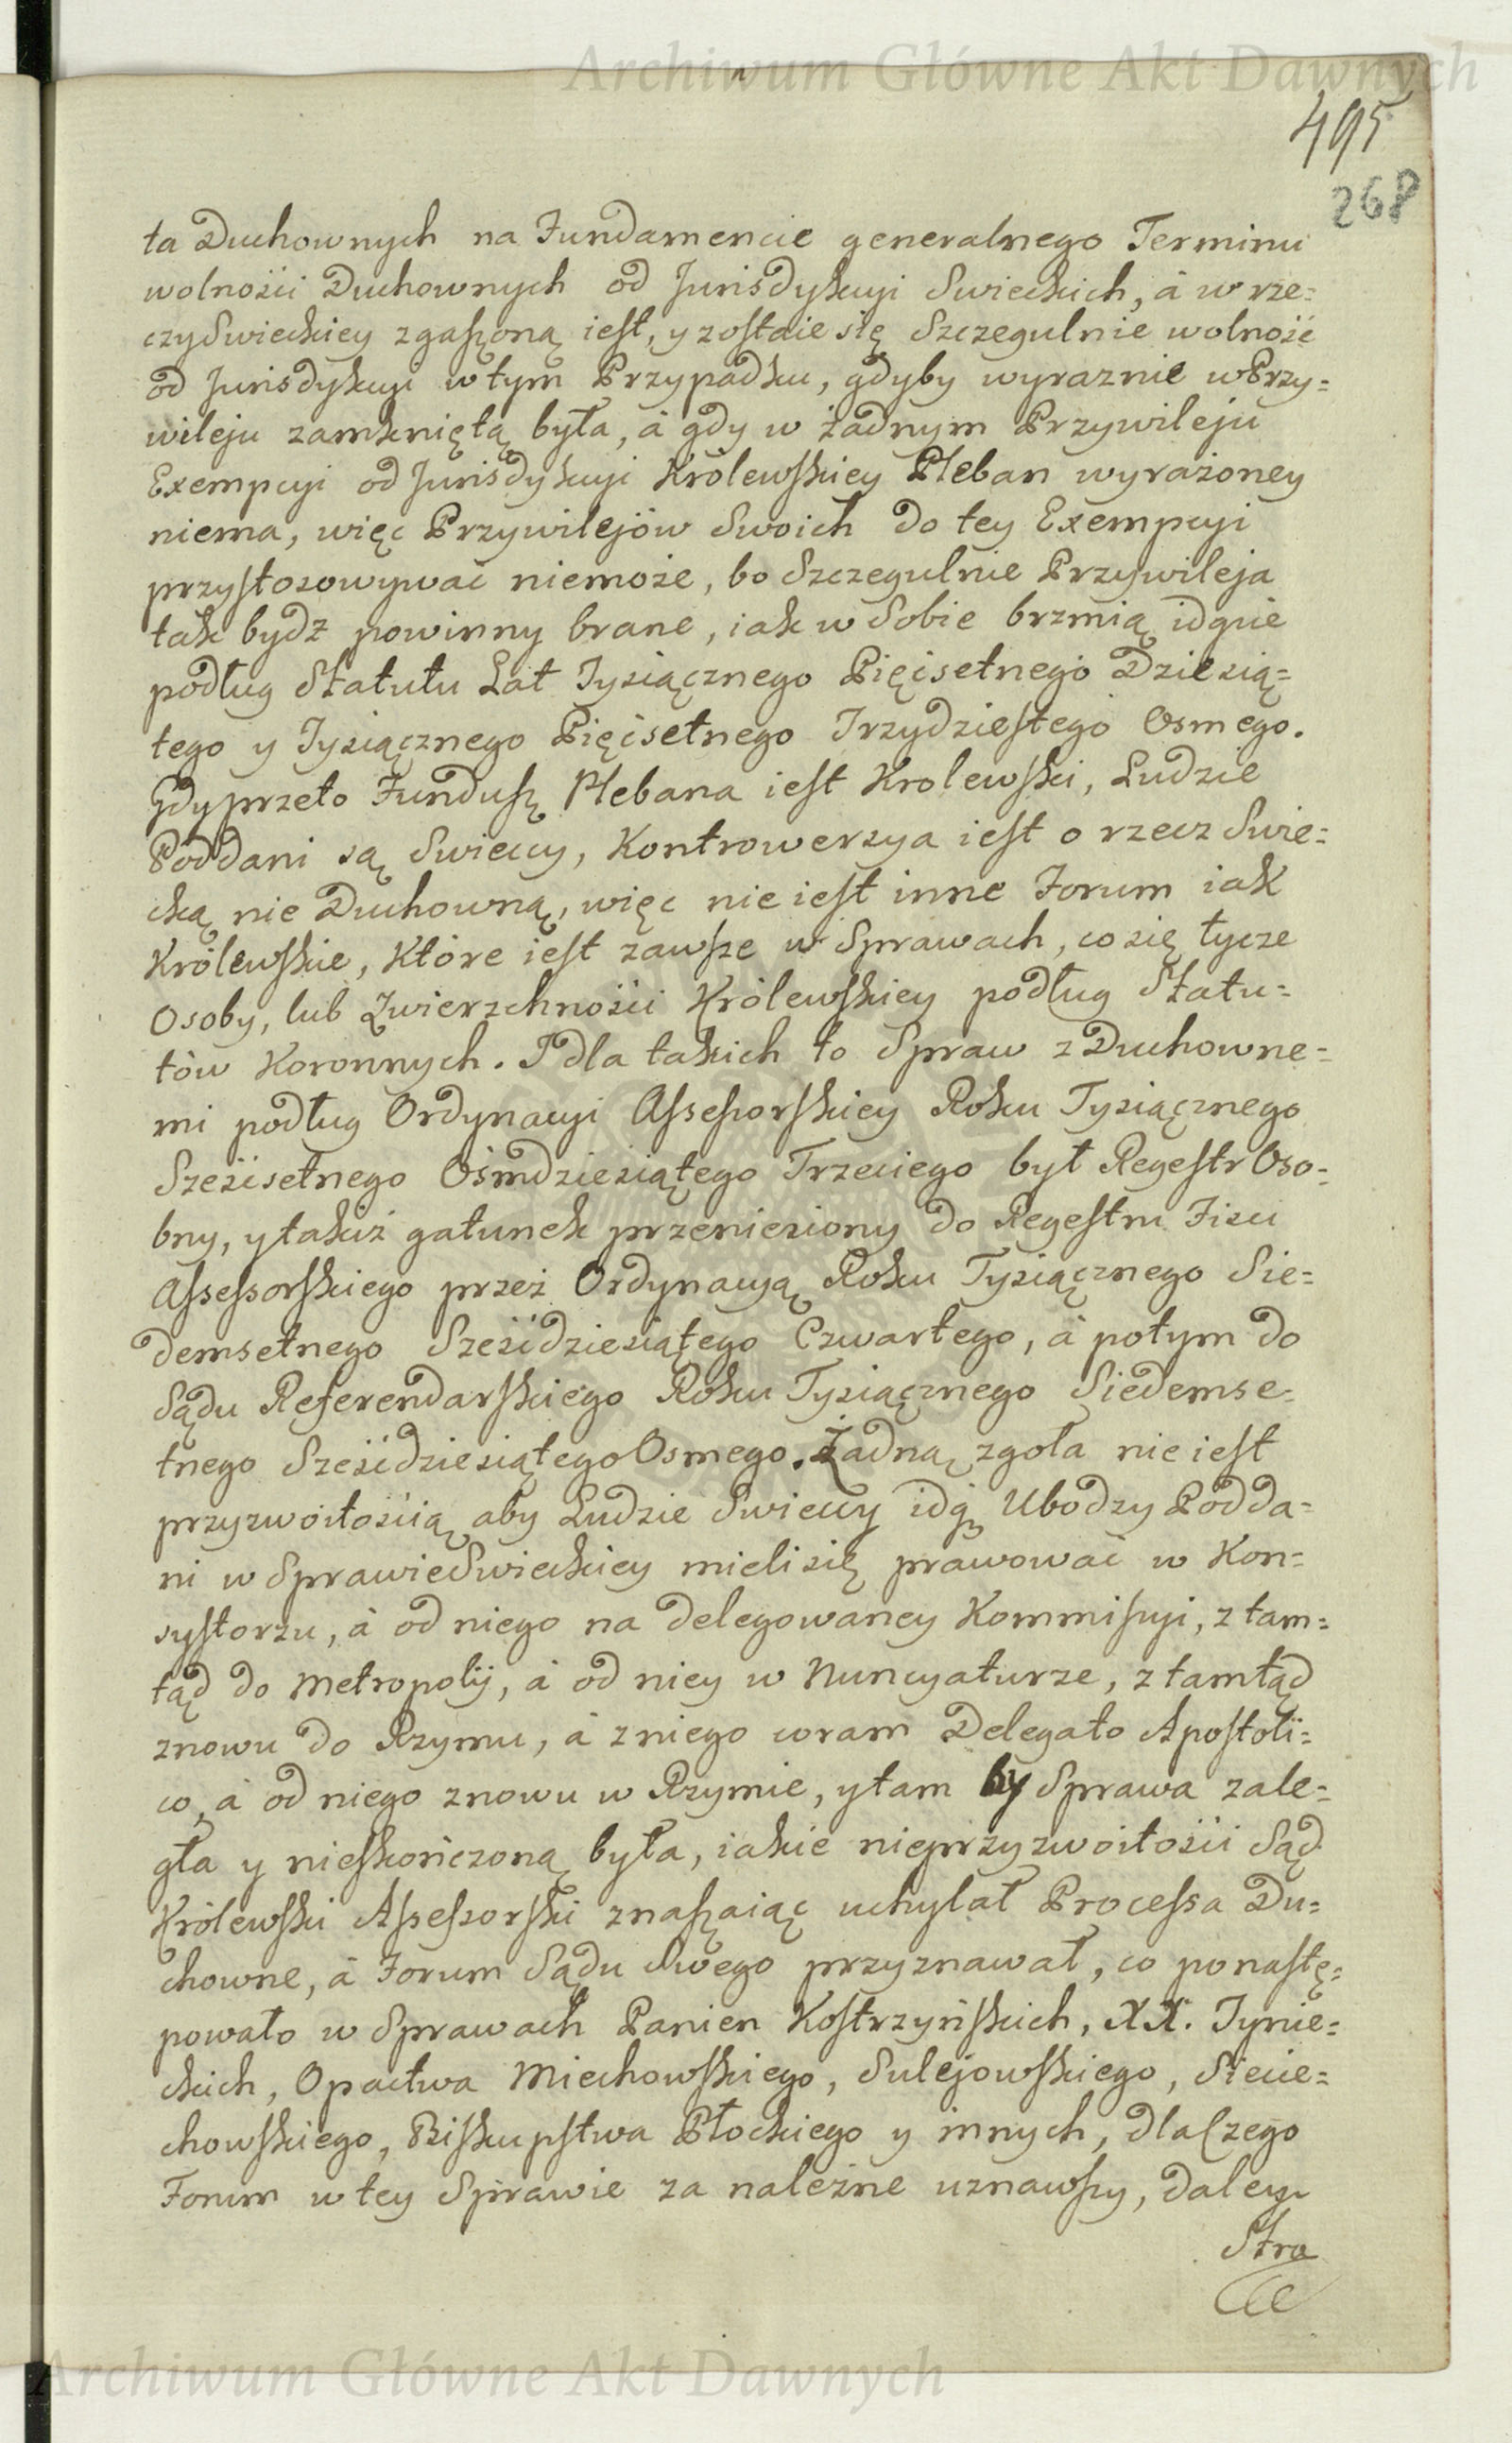 Archiwum Główne Akt Dawnych
495
268
ta Duchownych na Fundamencie generalnego Terminu
wolności Duchownych od Jurisdykcyi Swieckich, á w rze=
czy Swieckiey zgaszoną iest, y zostaie się Szczegulnie wolność
od Jurisdykcyi w tym Przypadku, gdyby wyraznie w Przy=
wileju zamknięta była, á gdy w żadnym Przywileju
Exempcyi od Jurisdykcyi Królewskiey Pleban wyrażoney
niema, więc Przywilejów Swoich do tey Exempcyi
przystosowywać niemoże, bo Szczegulnie Przywileja
tak bydz powinny brane, iak w Sobie brzmią idque
podług Statutu Lat Tysiącznego Pięćsetnego Dziesią=
tego y Tysiącznego Pięćsetnego Trzydziestego Osmego.
Gdy przeto Fundusz Plebana iest Krolewski, Ludzie
Poddani są Swieccy, Kontrowersya iest o rzecz Swie=
cką nie Duchowną, więc nie iest inne Forum iak
Królewskie, Które iest zawsze w Sprawach, co się tycze
Osoby, lub Zwierzchności Królewskiey podług Statu=
tów Koronnych. I dla takich to Spraw z Duchowne=
mi podług Ordynacyi Assessorskiey Roku Tysiącznego
Sześćsetnego Ośmdziesiątego Trzeciego był Regestr Oso=
bny, y takiż gatunek przeniesiony do Regestru Fisci
Assessorskiego przez Ordynacyą Roku Tysiącznego Sie=
demsetnego Sześćdziesiątego Czwartego, á potym do
Sądu Referendarskiego Roku Tysiącznego Siedemse=
tnego Sześćdziesiątego Osmego. Żadną zgoła nie iest
przyzwoitością aby Ludzie Swieccy idq Ubodzy Podda=
ni w Sprawie Swieckiey mieli się prawować w Kon=
systorzu, á od niego na delegowaney Kommissyi, z tam=
tąd do Metropolij, á od niey w Nuncyaturze, z tamtąd
znowu do Rzymu, á z niego coram Delegato Apostoli=
co, á od niego znowu w Rzymie, y tam by Sprawa zale=
gła y nieskończoną była, iakie nieprzyzwoitości Sąd
Królewski Assessorski znaszaiąc uchylał Processa Du=
chowne, á Forum Sądu Swego przyznawał, co ponastę=
powało w Sprawach Panien Kostrzyńskich, XX. Tynie=
ckich, Opactwa Miechowskiego, Sulejowskiego, Siecie=
chowskiego, Biskupstwa Płockiego y innych, dla Czego
Forum w tey Sprawie za należne uznawszy, daley
Stro
Archiwum Główne Akt Dawnych